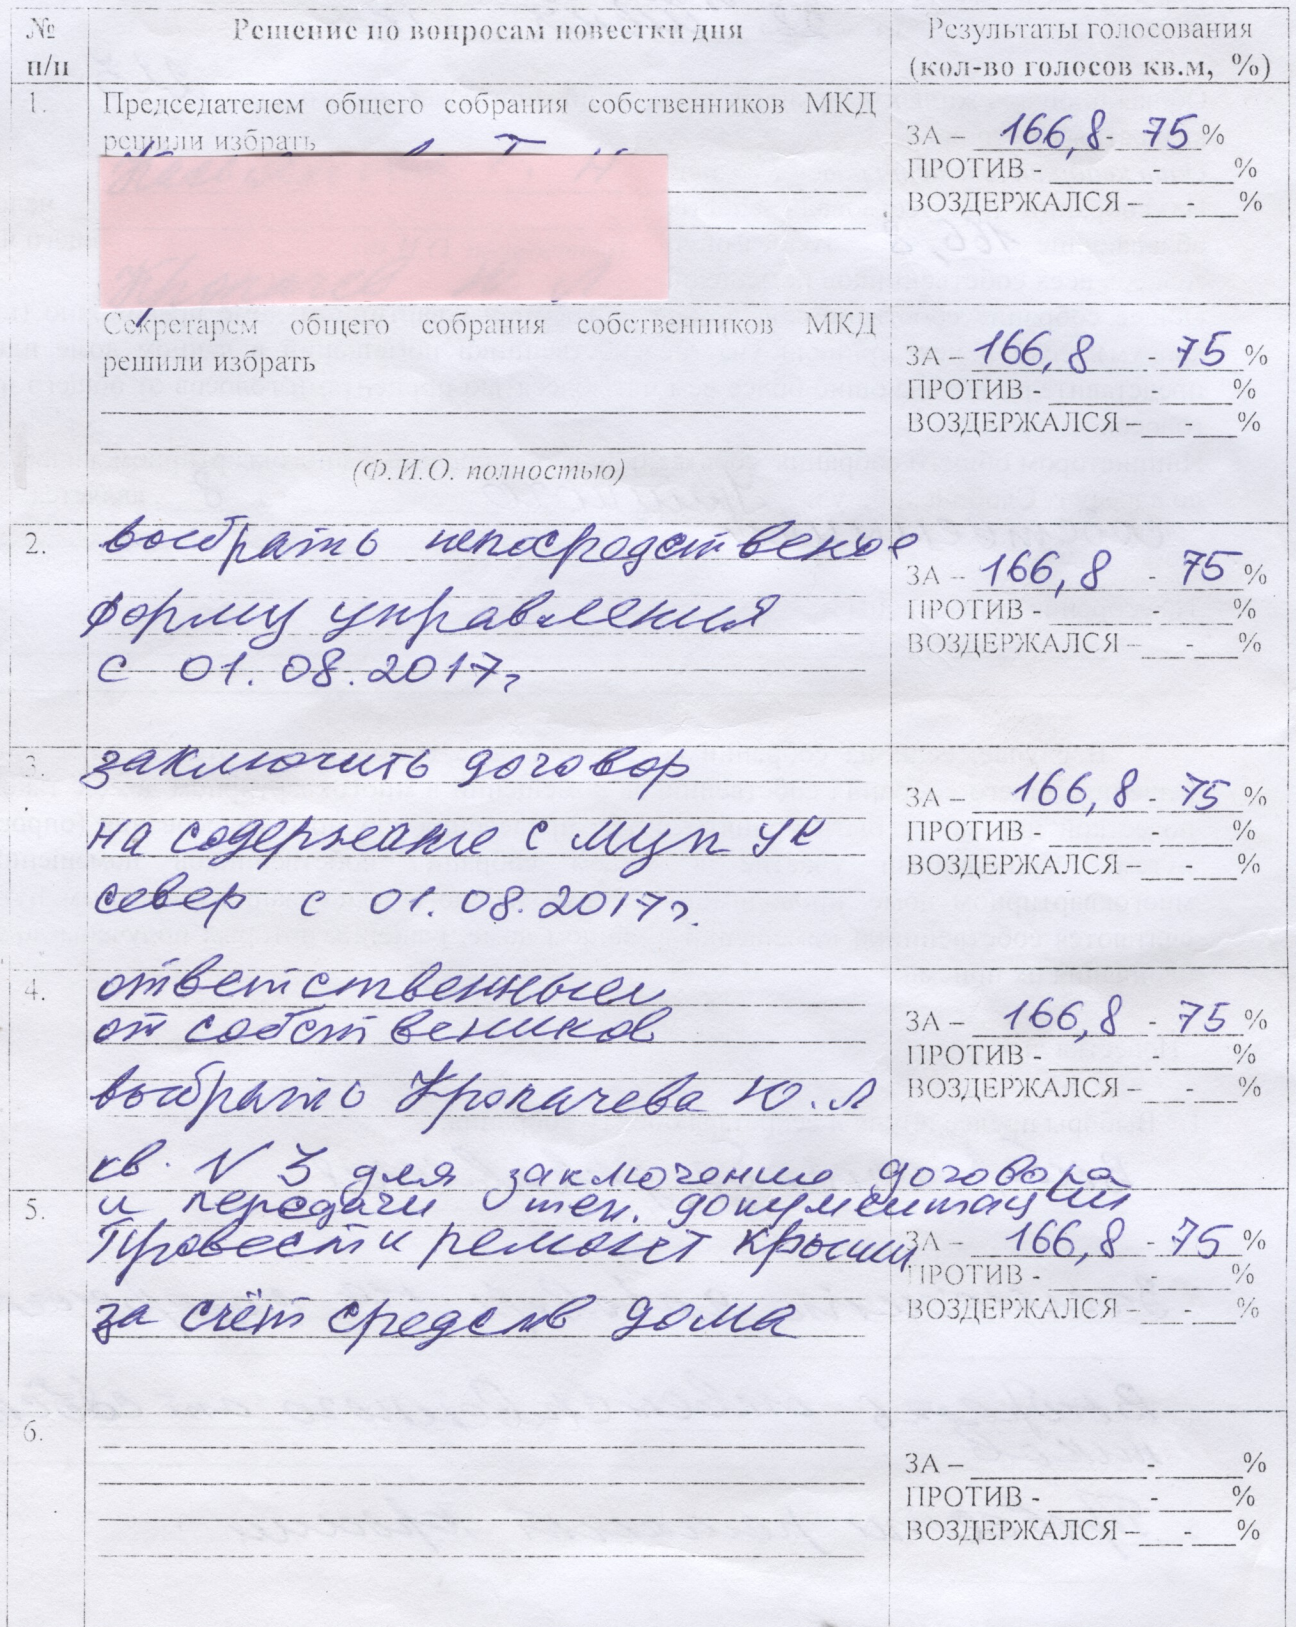 № п/п
Решение по вопросам повестки дня
Результаты голосования
(кол-во голосов кв.м, %)
1.
Председателем общего собрания собственников МКД
решили избрать
ЗА – 166,8 - 75 %
ПРОТИВ - ______-_____%
ВОЗДЕРЖАЛСЯ –___-___%
Секретарем общего собрания собственников МКД
решили избрать
(Ф.И.О. полностью)
ЗА – 166,8 - 75 %
ПРОТИВ - ______-_____%
ВОЗДЕРЖАЛСЯ –___-___%
2.
выбрать непосредственое
форму управления
с 01.08.2017г
ЗА – 166,8 - 75 %
ПРОТИВ - ______-_____%
ВОЗДЕРЖАЛСЯ –___-___%
3.
заключить договор
на содержание с МУП УК
север с 01.08.2017г.
ЗА – 166,8 - 75 %
ПРОТИВ - ______-_____%
ВОЗДЕРЖАЛСЯ –___-___%
4.
ответственным
от собствеников
выбрать Кропачева Ю.Л
кв. N 3 для заключение договора
и передачи тех. документации
ЗА – 166,8 - 75 %
ПРОТИВ - ______-_____%
ВОЗДЕРЖАЛСЯ –___-___%
5.
Провести ремонт крыши
за счёт средств дома
ЗА – 166,8 - 75 %
ПРОТИВ - ______-_____%
ВОЗДЕРЖАЛСЯ –___-___%
6.
ЗА – ____________-______%
ПРОТИВ - ______-_____%
ВОЗДЕРЖАЛСЯ –___-___%